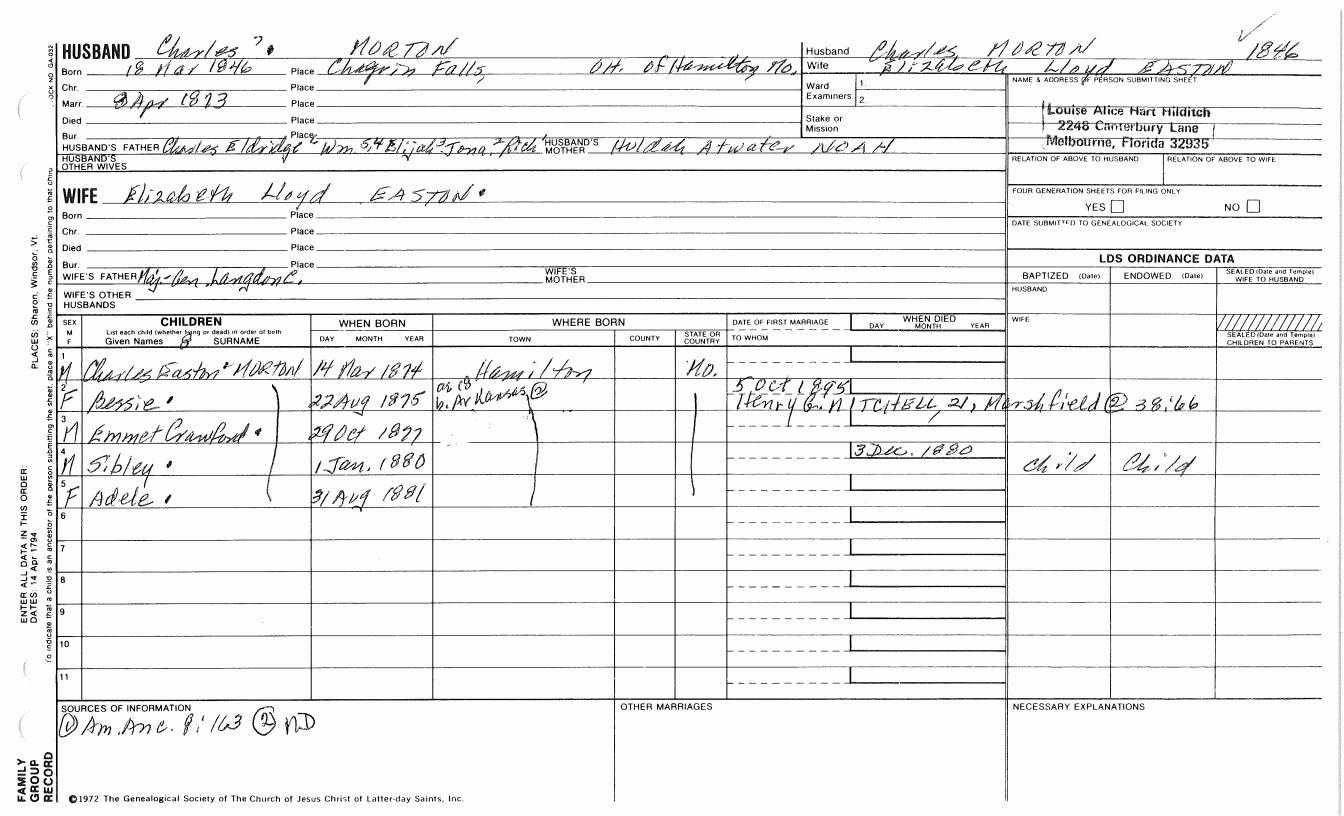 HUSBAND Charles 7 MORTON
Born 18 Mar 1846 Place Chagrin Falls, OH. of Hamilton, Mo.
Chr. Place
Marr. 3 Apr 1873 Place
Died Place
Bur. Place
HUSBAND'S FATHER Charles Eldridge 6 Wm 5,4 Elijah 3 Jona. 2 Rich 1 HUSBAND'S MOTHER Huldah Atwater NOAH
HUSBAND'S OTHER WIVES
WIFE Elizabeth Lloyd EASTON
Born Place
Chr. Place
Died Place
Bur. Place
WIFE'S FATHER Maj.-Gen. Langdon C. WIFE'S MOTHER
WIFE'S OTHER HUSBANDS
Husband Charles MORTON 1846
Wife Elizabeth Lloyd EASTON
Ward Examiners 1 2
Stake or Mission
NAME & ADDRESS OF PERSON SUBMITTING SHEET
Louise Alice Hart Hilditch
2248 Canterbury Lane
Melbourne, Florida 32935
RELATION OF ABOVE TO HUSBAND RELATION OF ABOVE TO WIFE
FOUR GENERATION SHEETS FOR FILING ONLY
YES NO
DATE SUBMITTED TO GENEALOGICAL SOCIETY
LDS ORDINANCE DATA
BAPTIZED (Date) ENDOWED (Date) SEALED (Date and Temple) WIFE TO HUSBAND
HUSBAND
WIFE
SEALED (Date and Temple) CHILDREN TO PARENTS
SEX M F
CHILDREN
List each child (whether living or dead) in order of birth
Given Names SURNAME
WHEN BORN DAY MONTH YEAR
WHERE BORN TOWN COUNTY STATE OR COUNTRY
DATE OF FIRST MARRIAGE TO WHOM
WHEN DIED DAY MONTH YEAR
1 M Charles Easton MORTON 14 Mar 1874 Hamilton Mo.
2 F Bessie 22 Aug 1875 b. Arkansas, 2 5 Oct 1895
Henry G. MITCHELL, 21, Marshfield 2 38:66
3 M Emmet Crawford 29 Oct 1877
4 M Sibley 1 Jan. 1880 3 Dec. 1880 Child Child
5 F Adele 31 Aug 1881
6
7
8
9
10
11
SOURCES OF INFORMATION
1 Am. Anc. 9:163 2 ND
OTHER MARRIAGES
NECESSARY EXPLANATIONS
©1972 The Genealogical Society of The Church of Jesus Christ of Latter-day Saints, Inc.
FAMILY GROUP RECORD
ENTER ALL DATA IN THIS ORDER:
DATES: 14 Apr 1794
PLACES: Sharon, Windsor, Vt.
To indicate that a child is an ancestor of the person submitting the sheet, place an "X" behind the number pertaining to that child